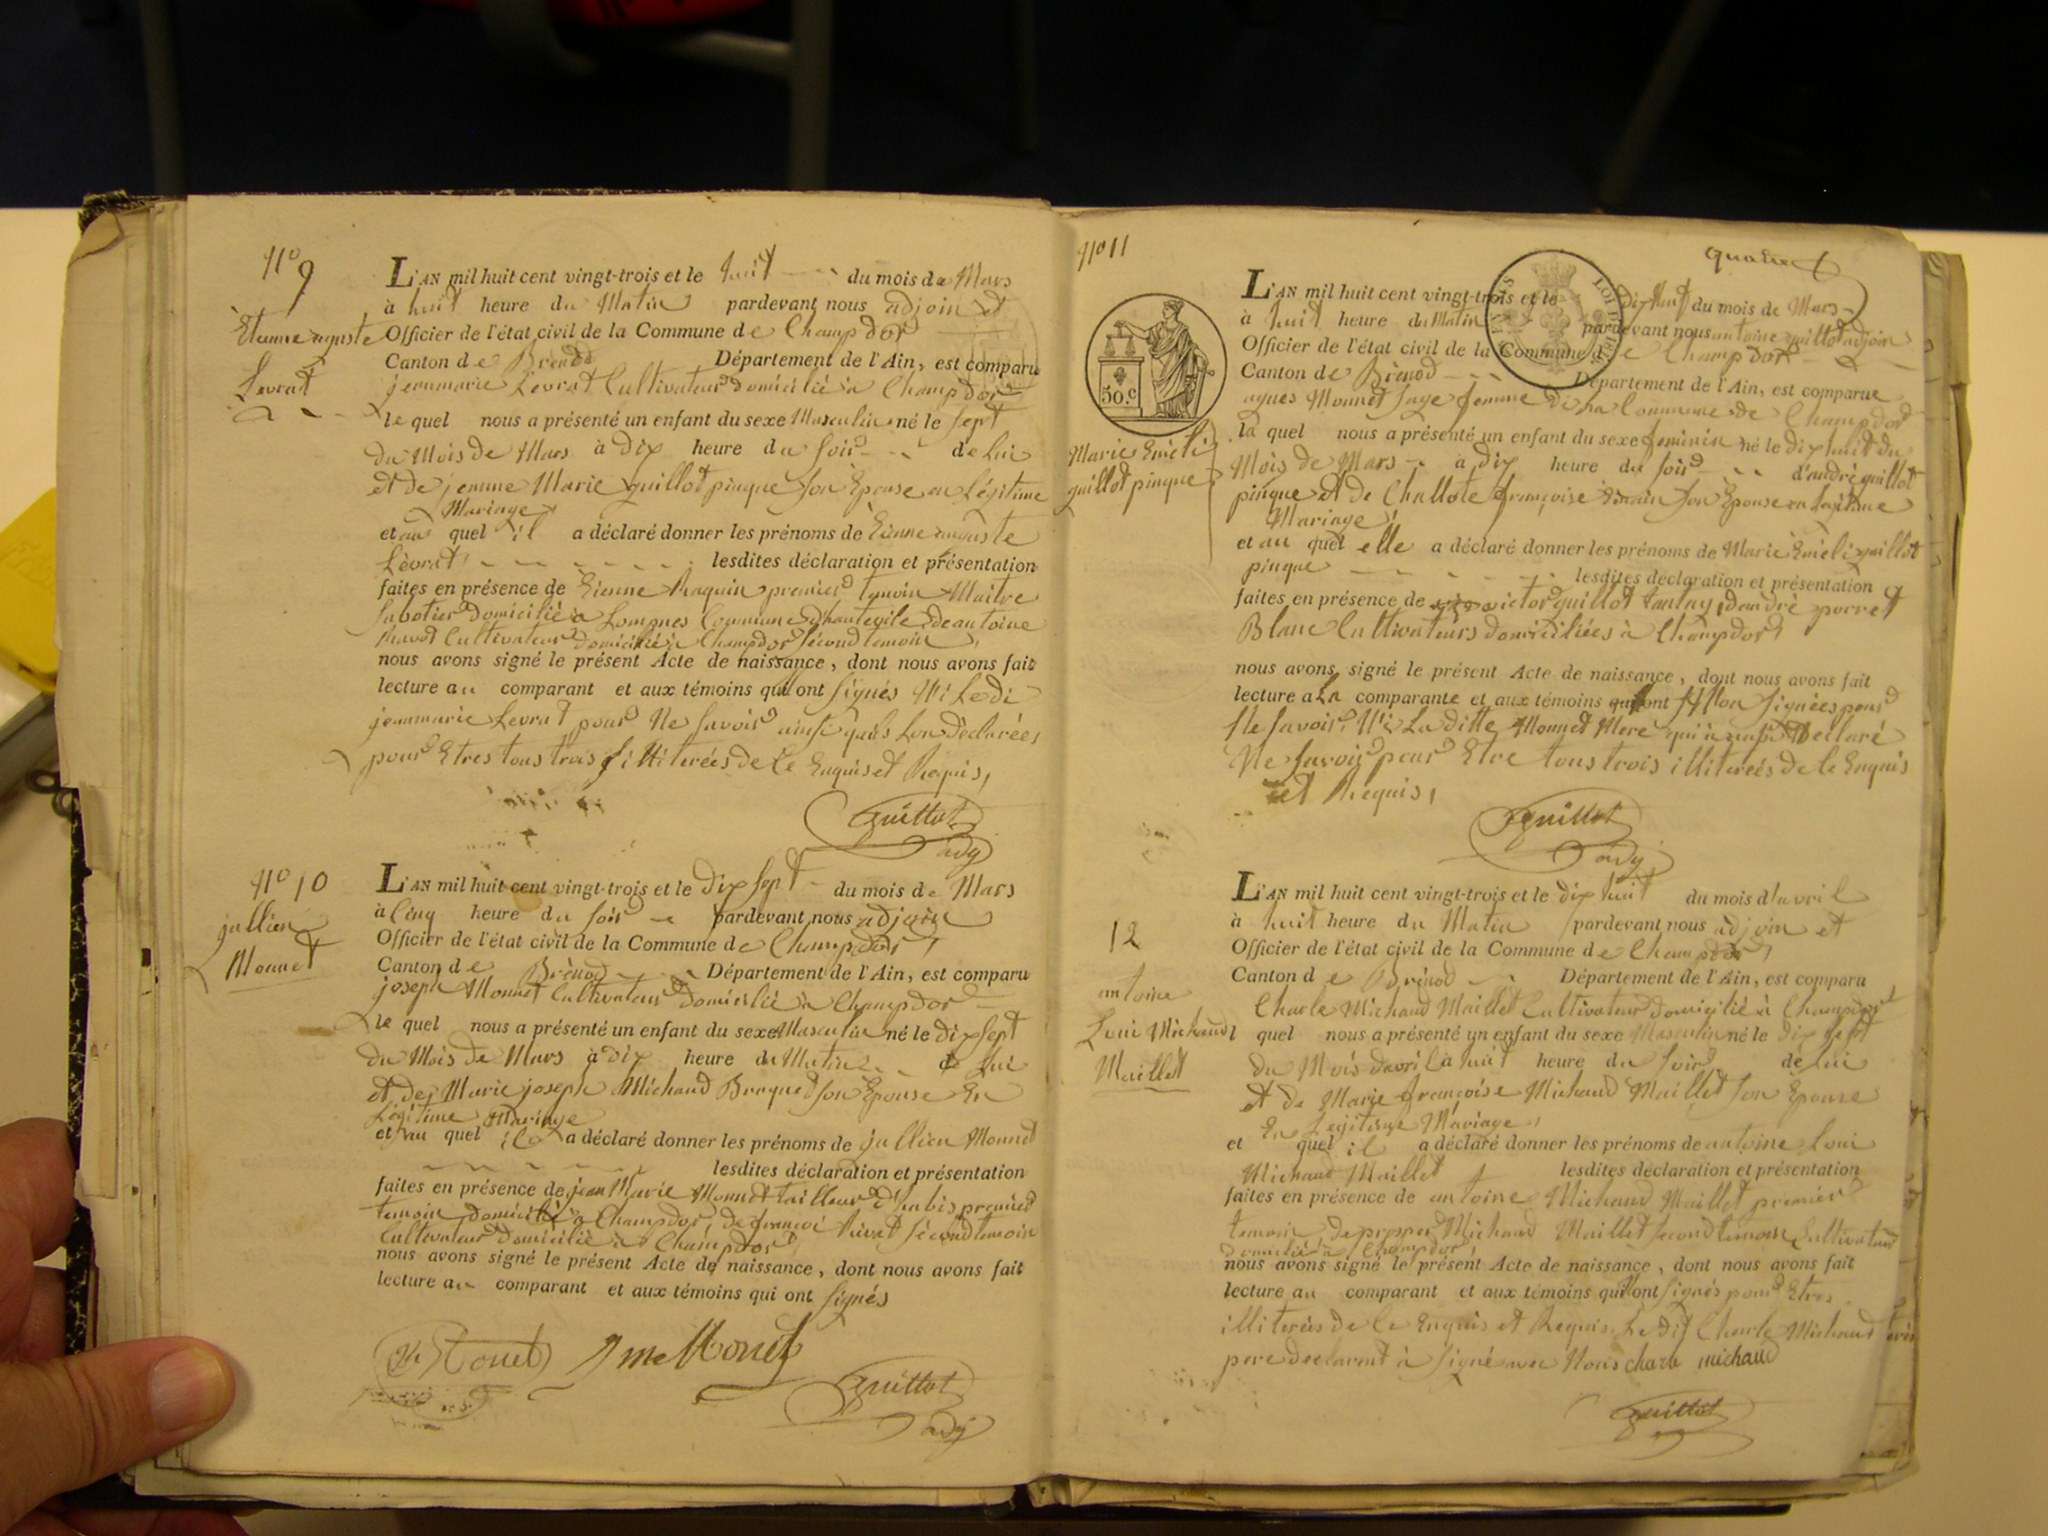 N° 9
Etienne auguste
Levrat
L'AN mil huit cent vingt-trois et le huit du mois de Mars
à huit heure du Matin pardevant nous adjoin et
Officier de l'état civil de la Commune de Champdor
Canton de Brenod Département de l'Ain, est comparu
jeanmarie Levrat Cultivateur domicilié à Champdor
le quel nous a présenté un enfant du sexe Masculin né le sept
du Mois de Mars à dix heure du soir de lui
et de jeanne Marie guillot pinque son Epouse en Légitime
Mariage
et au quel il a déclaré donner les prénoms de Etienne auguste
Levrat lesdites déclaration et présentation
faites en présence de Etienne premier temoin Maitre
Sabotier domicilié à Lompnes Commune d'hauteville, de antoine
Cultivateur domicilié à Champdor second temoin,
nous avons signé le présent Acte de naissance, dont nous avons fait
lecture au comparant et aux témoins qui ont signés Ni Ledi
jeanmarie Levrat pour Ne savoir ainsi qu'ils Lon Déclarées
pour Etres tous trois illiterées de Le Enquis et Requis,
Guillot
adj
N° 10
jullien
Monnet
L'AN mil huit cent vingt-trois et le dix sept du mois de Mars
à Cinq heure du soir pardevant nous adjoin
Officier de l'état civil de la Commune de Champdor,
Canton de Brénod Département de l'Ain, est comparu
joseph Monnet Cultivateur domicilié à Champdor
le quel nous a présenté un enfant du sexe Masculin né le dix sept
du Mois de Mars à dix heure du Matin de lui
et de Marie joseph Michaud Braquet son Epouse En
Légitime Mariage
et au quel il a déclaré donner les prénoms de jullien Monnet
lesdites déclaration et présentation
faites en présence de jean Marie Monnet tailleur d'habis premier
temoin domicilié à Champdor, de françoi second temoin
Cultivateur domicilié à Champdor,
nous avons signé le présent Acte de naissance, dont nous avons fait
lecture au comparant et aux témoins qui ont signés
Monet
Guillot
adj
N° 11
quatre
50.C
Marie Emeli
guillot pinque
L'AN mil huit cent vingt-trois et le dix huit du mois de Mars
à huit heure du Matin pardevant nous antoine guillot adjoin
Officier de l'état civil de la Commune de Champdor
Canton de Brénod Département de l'Ain, est comparue
agnes Monnet sage femme de la Commune de Champdor
la quel nous a présenté un enfant du sexe feminin né le dix huit du
Mois de Mars à dix heure du soir d'andré guillot
pinque et de Challote françoise son Epouse en Légitime
Mariage,
et au quel elle a déclaré donner les prénoms de Marie Emeli guillot
pinque lesdites déclaration et présentation
faites en présence de victor guillot tantay, d'andré porret
Blanc Cultivateurs domiciliées à Champdor,
nous avons signé le présent Acte de naissance, dont nous avons fait
lecture a La comparante et aux témoins qui ont Non signées pour
Ne savoir, Ni La ditte Monnet Mere qui à aussi Declaré
Ne savoir pour Etre tous trois illiterées de Le Enquis
et Requis,
Guillot
adj
12
antoine
Loui Michaud
Maillet
L'AN mil huit cent vingt-trois et le dix huit du mois d'avril
à huit heure du Matin pardevant nous adjoin et
Officier de l'état civil de la Commune de Champdor,
Canton de Brénod Département de l'Ain, est comparu
Charle Michaud Maillet Cultivateur domicilié à Champdor
l quel nous a présenté un enfant du sexe Masculin né le dix sept
du Mois d'avril à huit heure du soir de lui
et de Marie françoise Michaud Maillet son Epouse
En Legitime Mariage,
et quel il a déclaré donner les prénoms de antoine Loui
Michaud Maillet lesdites déclaration et présentation
faites en présence de antoine Michaud Maillet premier
temoin, de Michaud Maillet second temoin Cultivateur
domicilié à Champdor,
nous avons signé le présent Acte de naissance, dont nous avons fait
lecture au comparant et aux témoins qui Non signés pour Etres
illiterés de Le Enquis et Requis, Le dit Charle Michaud
pere declarent à signé avec Nous charle michaud
Guillot